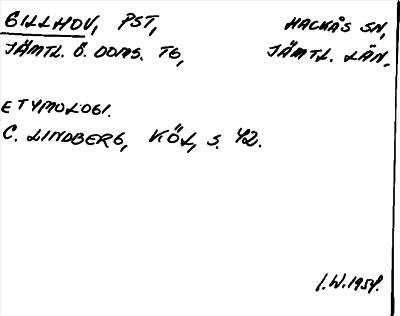 GILLHOV, PST, HACKÅS SN,
JÄMTL. Ö. DOMS. TG, JÄMTL. LÄN.
ETYMOLOGI.
C. LINDBERG, KÖL, S. 42.
I.W. 1954.